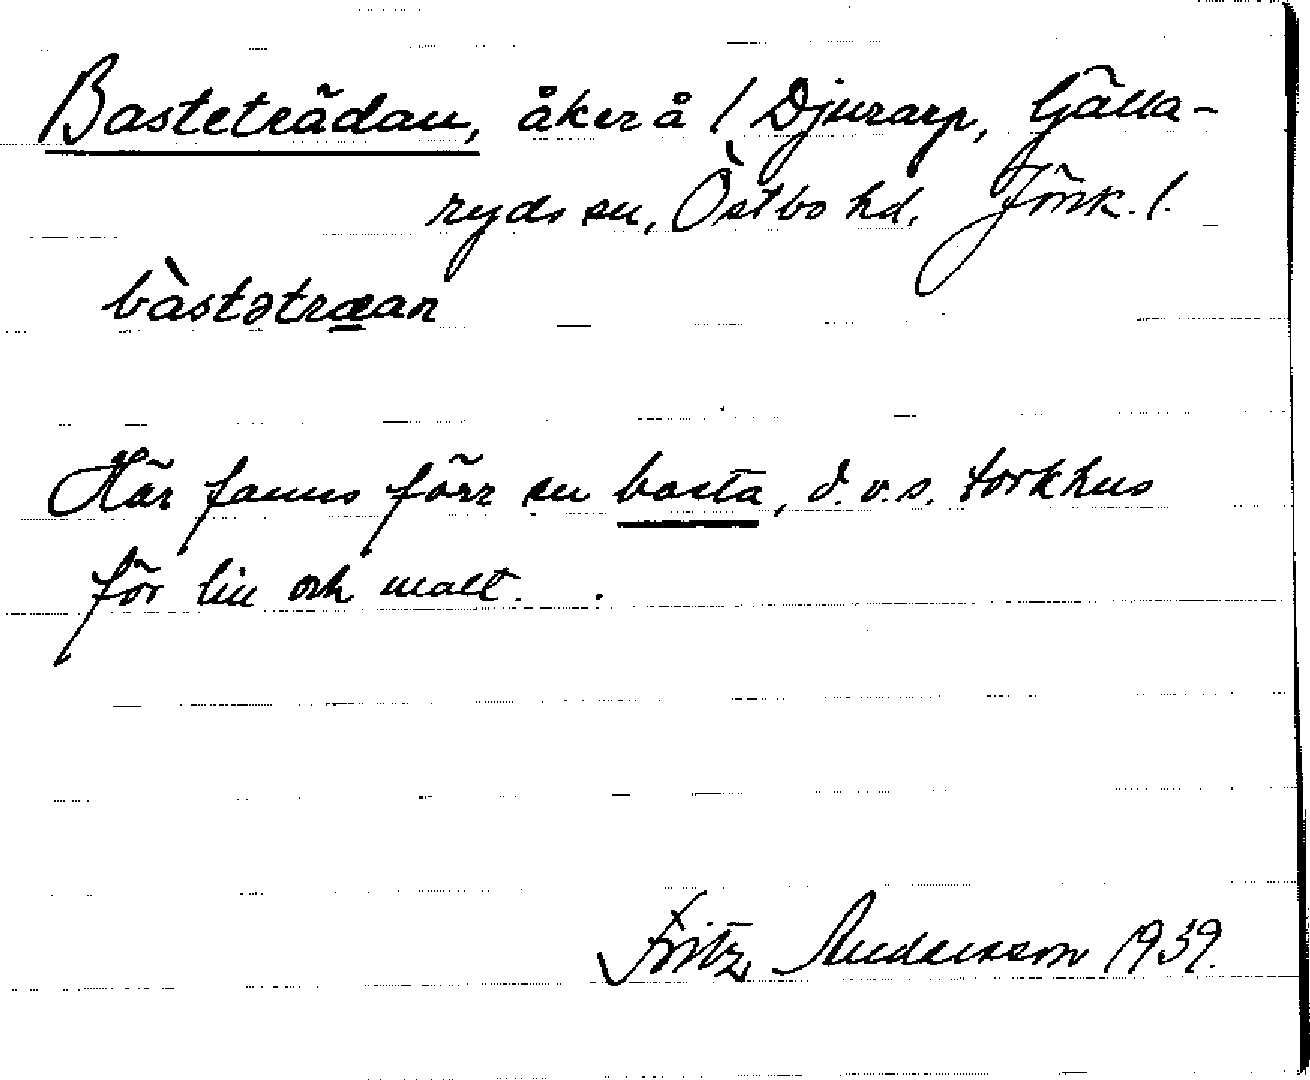 Basteträdan, åker å / Djurarp, Gälla-
ryds sn, Östbo hd, Jönk. l.
bàstətræan
Här fanns förr en basta, d.v.s. torkhus
för lin och malt.
Fritz Andersson 1939.